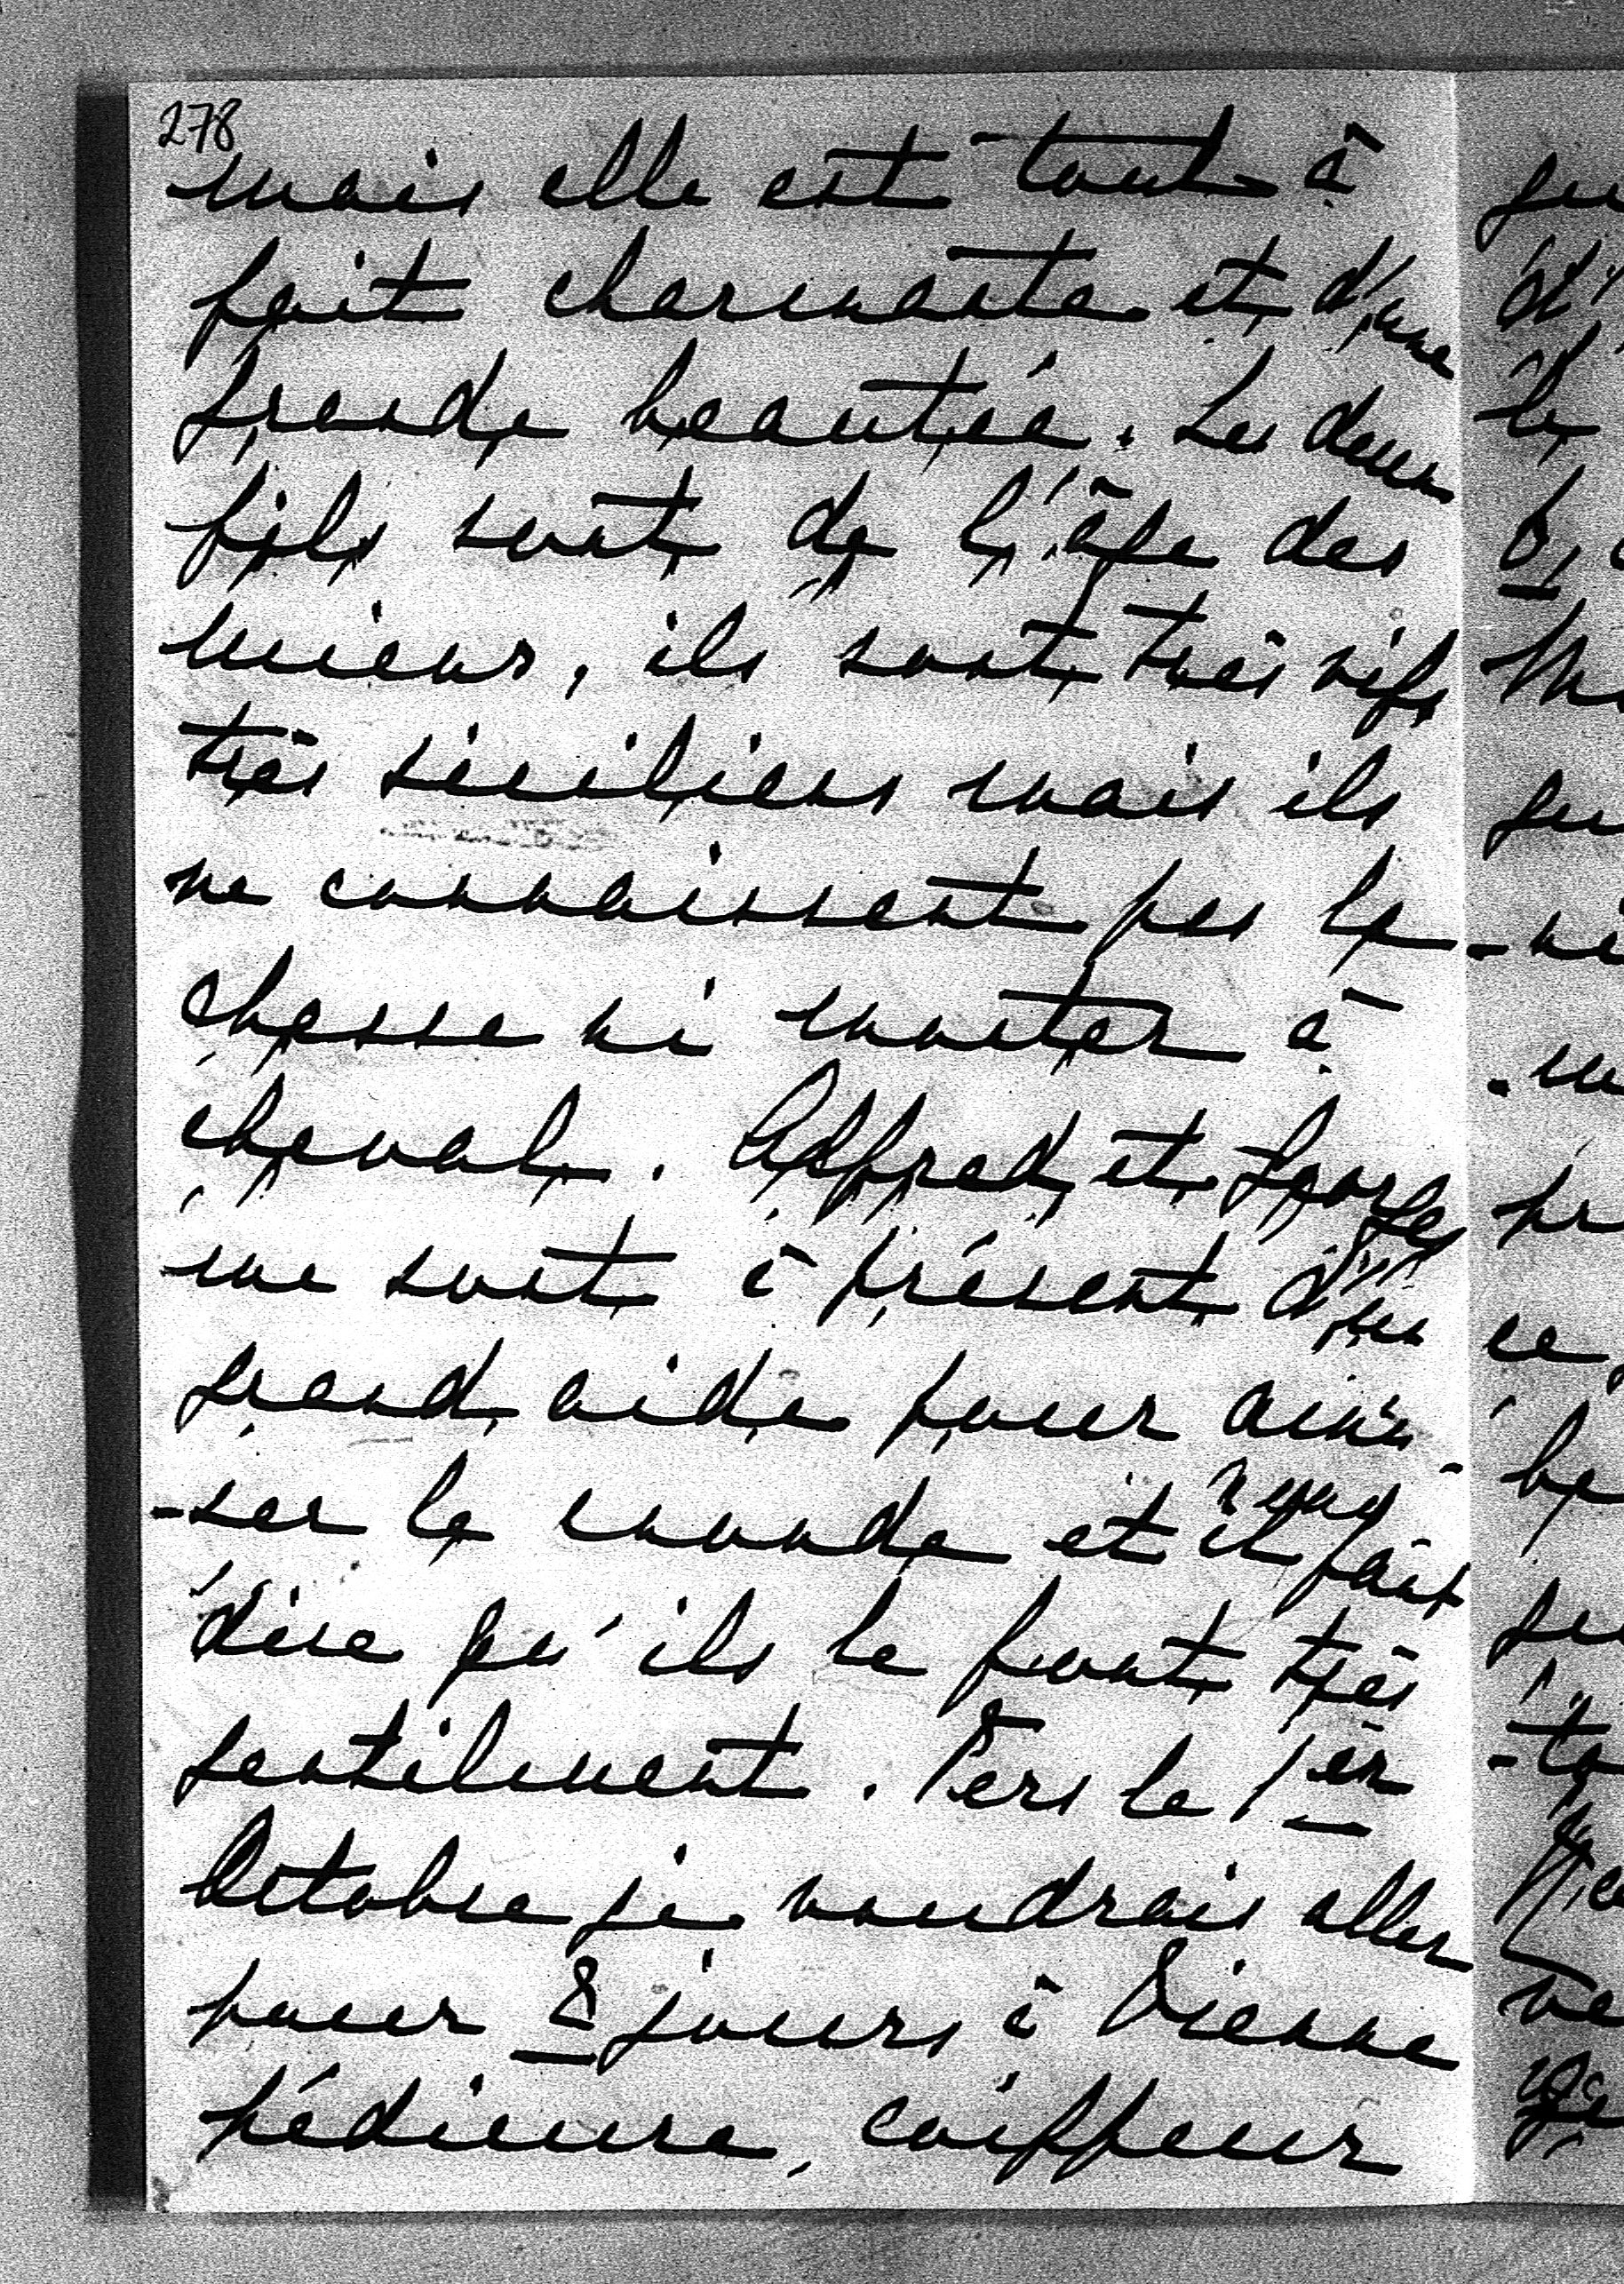 278
mais elle est tout à
fait charmante et d'une
grande beautée. Les deux
fils sont de l'âge des
mieux, ils sont très vifs
très siciliens mais ils
ne connaissent pas la
chasse ni monter à
cheval. Alfred et Georges
me sont à présent d'un
grand aide pour amu
-ser le monde et il faut
dire qu'ils le font très
gentilment. Vers le 1er
Octobre je voudrais aller
pour 8 jours à Vienne
pédicure, coiffeur